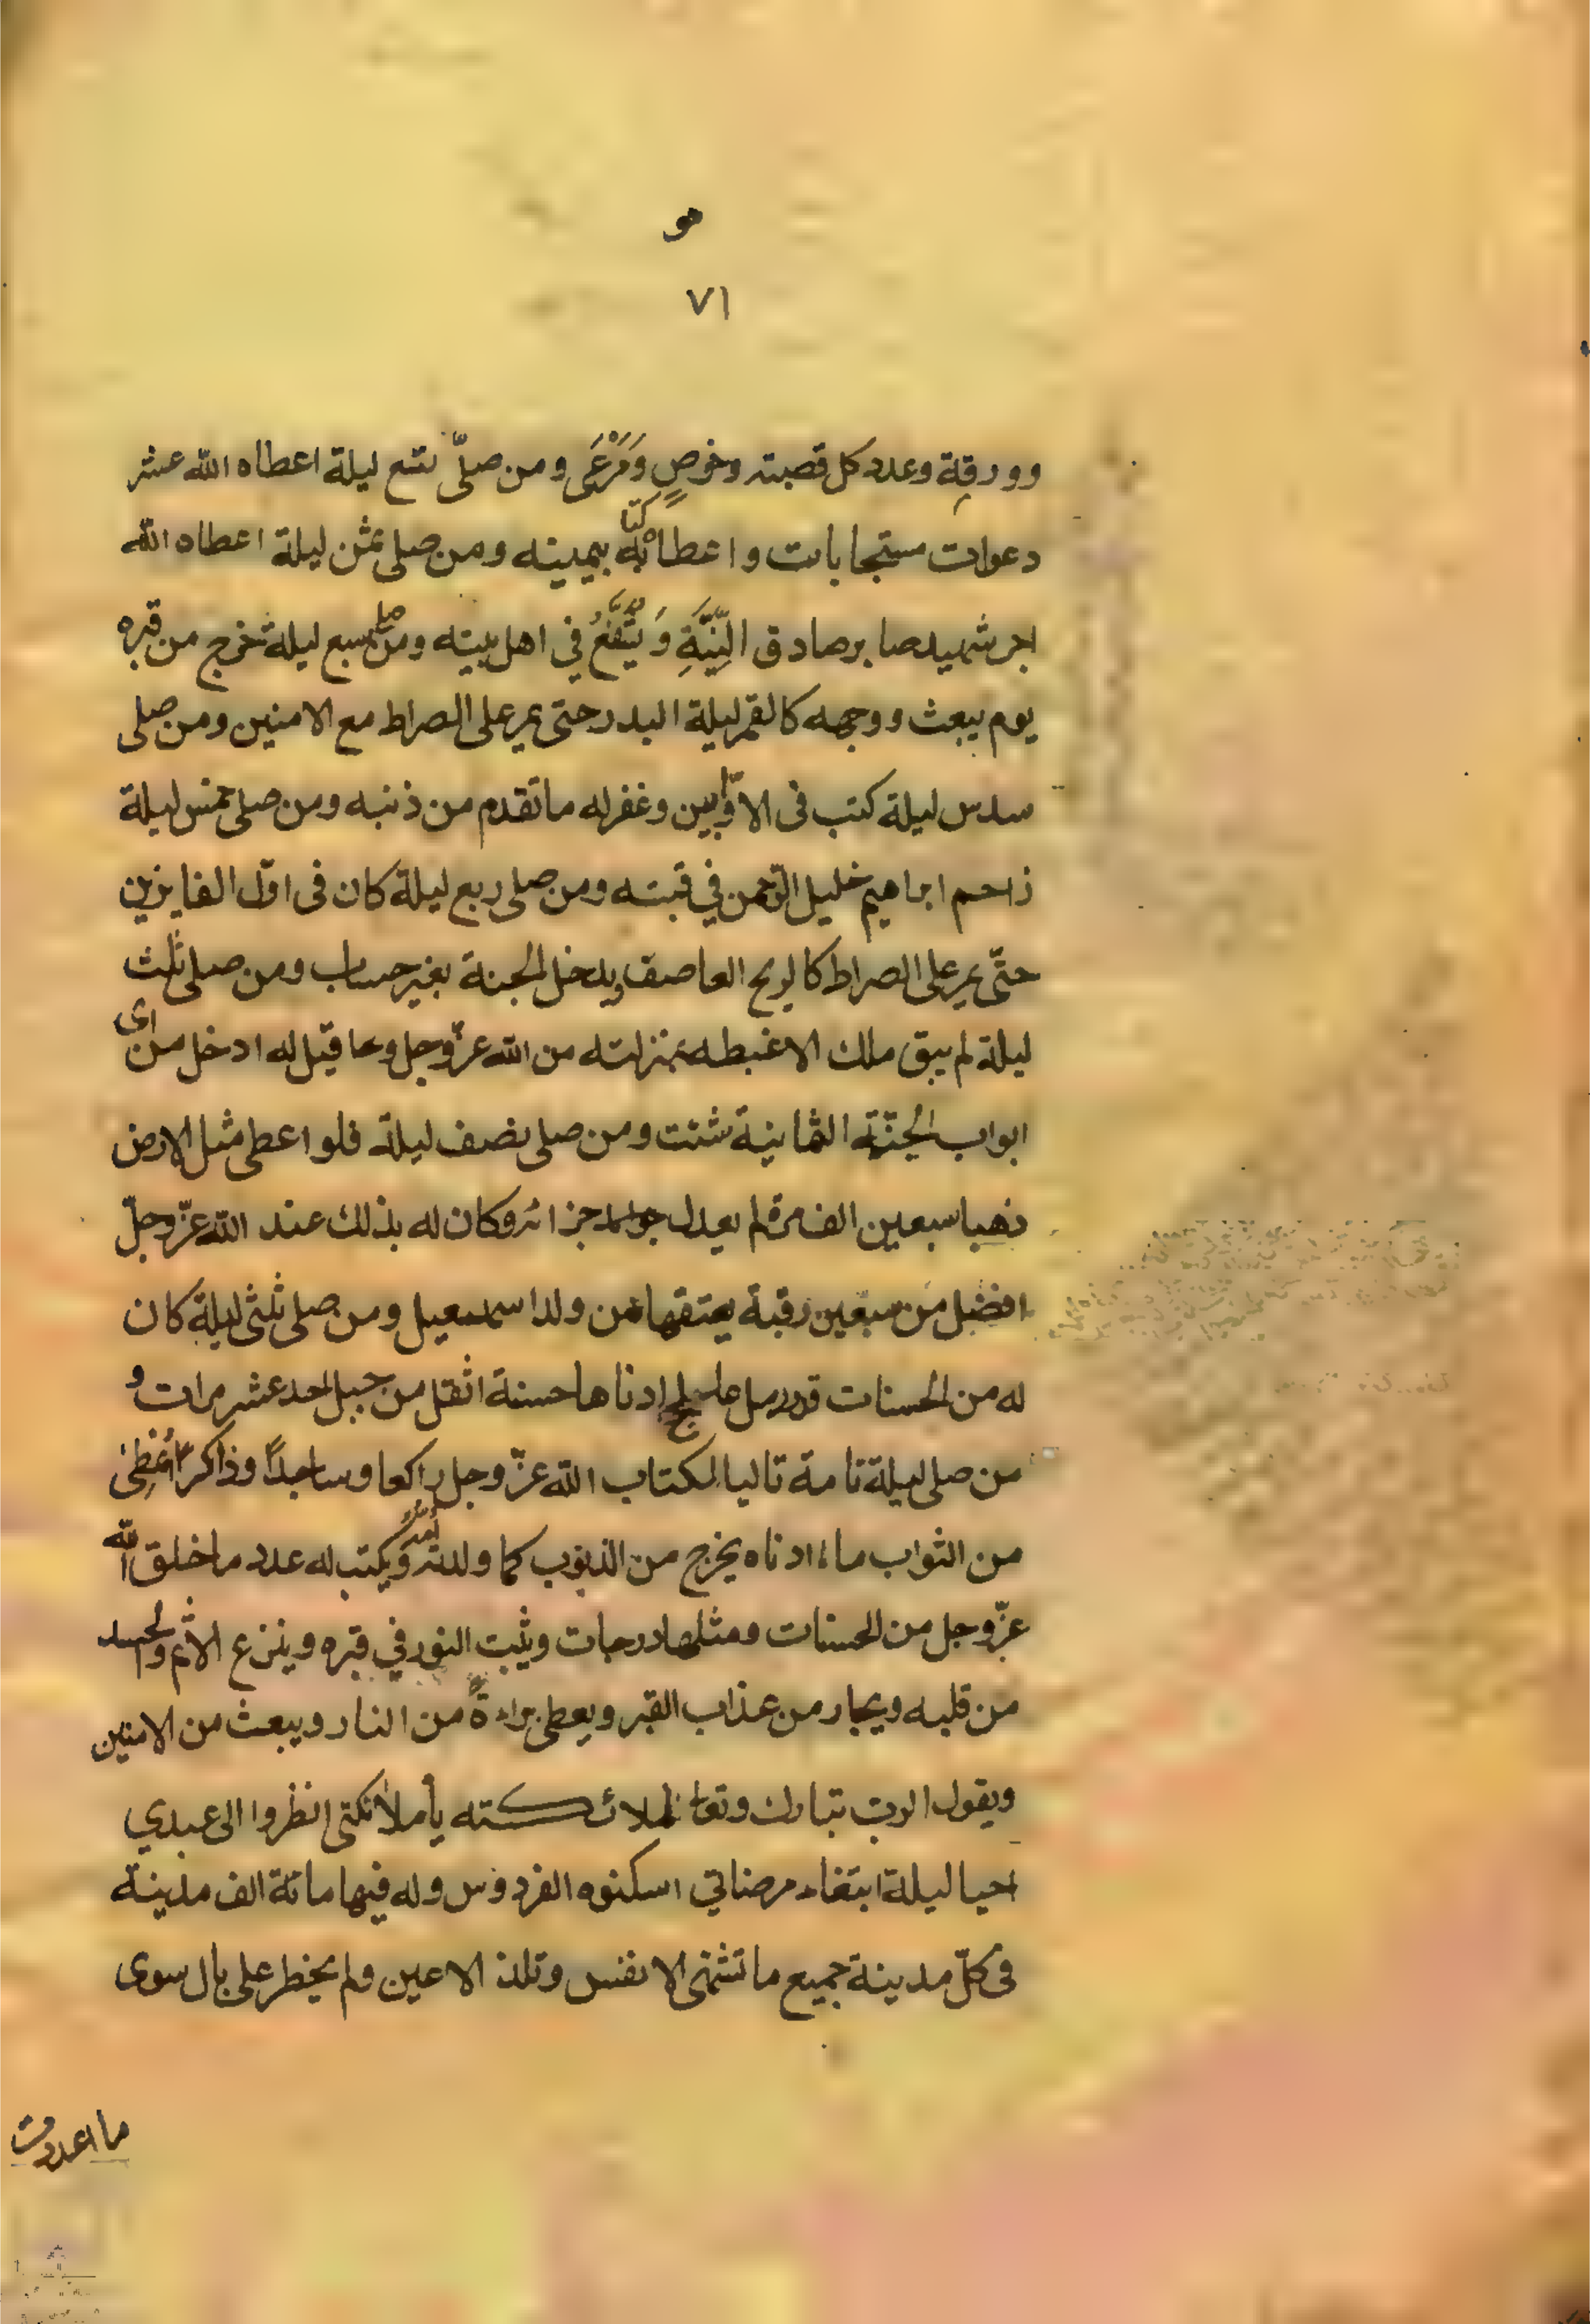 هو
٧١
وورقة وعدد كل قصبته وخوصٍ وَمَرْعَى ومن صلّى تسع ليلة اعطاه الله عشر
دعوات مستجابات واعطاه كتابه بيمينه ومن صلى ثمن ليلة اعطاه الله
اجر شهيد صابر صادق النِّيَّةِ وَيُشَفَّعُ في اهل بيته ومن صلى سبع ليلة خرج من قبره
يوم يبعث ووجهه كالقمر ليلة البدر حتى يمر على الصراط مع الامنين ومن صلى
سدس ليلة كتب فى الاوّابين وغفر له ما تقدم من ذنبه ومن صلى خمس ليلة
زاحم ابراهيم خليل الرّحمن في قبته ومن صلى ربع ليلة كان فى اوّل الفايزين
حتّى يمر على الصراط كالريح العاصف ويدخل الجنة بغير حساب ومن صلى ثلث
ليلة لم يبق ملك الا غبطه بمنزلته من الله عزّ وجل وقيل له ادخل من اى
ابواب الجنّة الثمانية شئت ومن صلى نصف ليلة فلو اعطى مثل الارض
ذهبا سبعين الف مرة لم يعدل جزائه وكان له بذلك عند الله عزّ وجلّ
افضل من سبعين رقبة يعتقها من ولد اسمعيل ومن صلى ثلثى ليلة كان
له من الحسنات قدر رمل عالج ادناها حسنة اثقل من جبل احد عشر مرات و
من صلى ليلة تامة تاليا لكتاب الله عزّ وجل راكعا وساجداً وذاكراً أُعْطِىَ
من الثواب ما ادناه يخرج من الذنوب كما ولدته أمّه ويكتب له عدد ما خلق الله
عزّ وجل من الحسنات ومثلها درجات ويثبت النور في قبره وينزع الاثم والحسد
من قلبه ويجار من عذاب القبر ويعطى براءةً من النار ويبعث من الامنين
ويقول الرب تبارك وتعالى لملائكته يا ملائكتى انظروا الى عبدي
احيا ليلة ابتغاء مرضاتي اسكنوه الفردوس وله فيها مائة الف مدينة
فى كلّ مدينة جميع ما تشتهى الانفس وتلذ الاعين ولم يخطر على بال سوى
ما اعددت